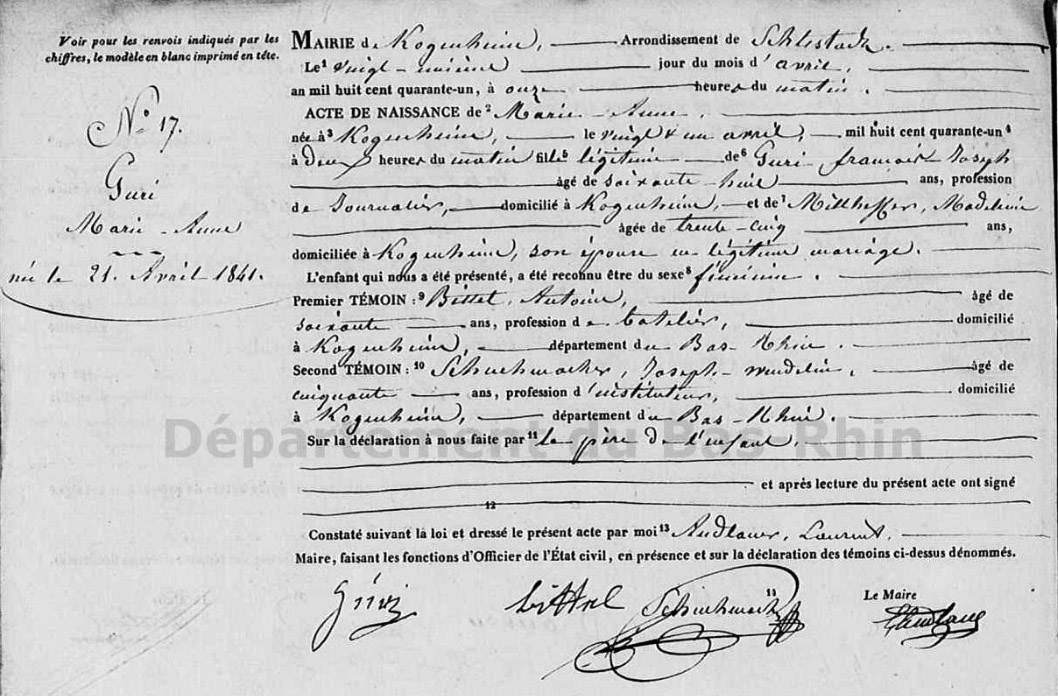 Voir pour les renvois indiqués par les
chiffres, le modèle en blanc imprimé en tête.
N.º 17.
Guri
Marie-Anne
née le 21. Avril 1841.
MAIRIE de Kogenheim, Arrondissement de Schlestadt.
Le¹ vingt-unième jour du mois d'avril,
an mil huit cent quarante-un, à onze heures du matin.
ACTE DE NAISSANCE de² Marie-Anne,
née à³ Kogenheim, le vingt & un avril, mil huit cent quarante-un⁴
à deux heures du matin fille⁵ légitime de⁶ Guri, françois Joseph
âgé de soixante-huit ans, profession
de Journalier, domicilié à Kogenheim, et de⁷ Madeleine
âgée de trente-cinq ans,
domiciliée à Kogenheim, son épouse en légitime mariage.
L'enfant qui nous a été présenté, a été reconnu être du sexe⁸ féminin.
Premier TÉMOIN :⁹ Bittel, Antoine, âgé de
soixante ans, profession de batelier, domicilié
à Kogenheim, département du Bas-Rhin.
Second TÉMOIN :¹⁰ Schuhmacher, Joseph-wendelin, âgé de
cinquante ans, profession d'instituteur, domicilié
à Kogenheim, département du Bas-Rhin.
Sur la déclaration à nous faite par¹¹ le père de l'enfant,
et après lecture du présent acte ont signé
12
Constaté suivant la loi et dressé le présent acte par moi¹³ Andlauer, Laurent,
Maire, faisant les fonctions d'Officier de l'État civil, en présence et sur la déclaration des témoins ci-dessus dénommés.
Le Maire
bittel Schuhmacher Andlauer
Département du Bas-Rhin